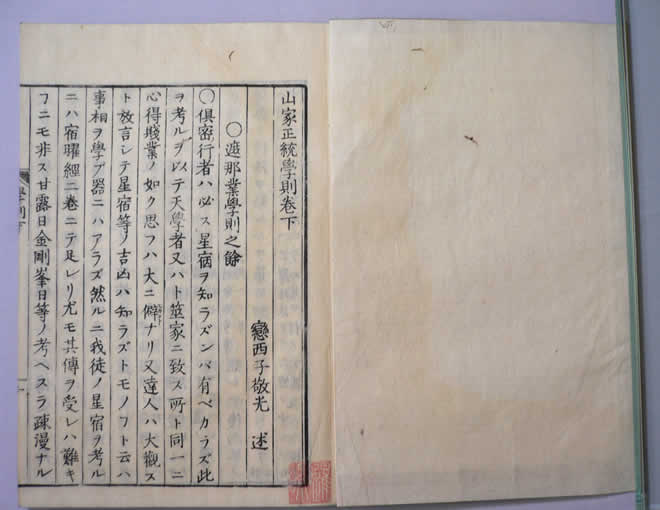 山家正統學則卷下
戀西子敬光 述
〇遮那業學則之餘
〇倶密行者ハ必ス星宿ヲ知ラズンバ有ベカラズ此
ヲ考ルヲ以テ天學者又ハト筮家ニ致ス所ト同一ニ
心得殘業ノ如ク思フハ大ニ僻ナリ又達人ハ大觀ス
ト放言レテ星宿等ノ吉凶ハ知ラズトモノフト云ハ
事相ヲ學ブ器ニハアラズ然ルニ我徒ノ星宿ヲ考ル
ニハ宿曜經二卷ニテ足レリ尤モ其傳ヲ受レハ難キ
フニモ非ス甘露日金剛峯日等ノ考ヘスラ疎漫ナル
學則下